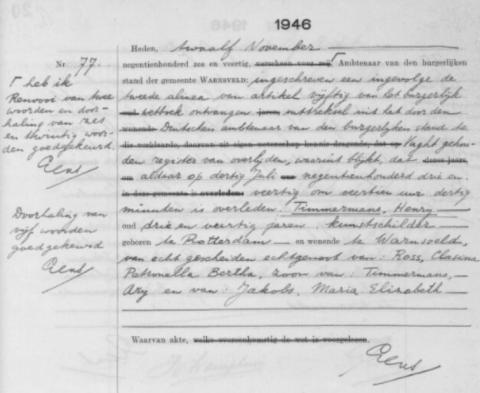 1946
Heden, twaalf November
Nr 77. negentienhonderd zes en veertig, Ambtenaar van den burgerlijken
stand der gemeente WARNSVELD: ingeschreven een ingevolge de
tweede alinea van artikel vijftig van het burgerlijk
wetboek ontvangen uittreksel uit het door den
Duitschen ambtenaar van den burgerlijken stand te
Vught gehou-
den register van overlijden, waaruit blijkt, dat
aldaar op dertig Juli negentienhonderd drie en
veertig om veertien uur dertig
minuten is overleden: Timmermans, Henry
oud drie en veertig jaren, kunstschilder
geboren te Rotterdam en wonende te Warnsveld,
van echt gescheiden echtgenoot van: Ross, Clasina
Petronella Bertha, zoon van: Timmermans,
Ary en van: Jakobs, Maria Elizabeth
Waarvan akte, welke overeenkomstig de wet is voorgelezen.
heb ik
Renvooi van twee
woorden en door-
haling van zes
en twintig woor-
den goedgekeurd.
Doorhaling van
vijf woorden
goedgekeurd